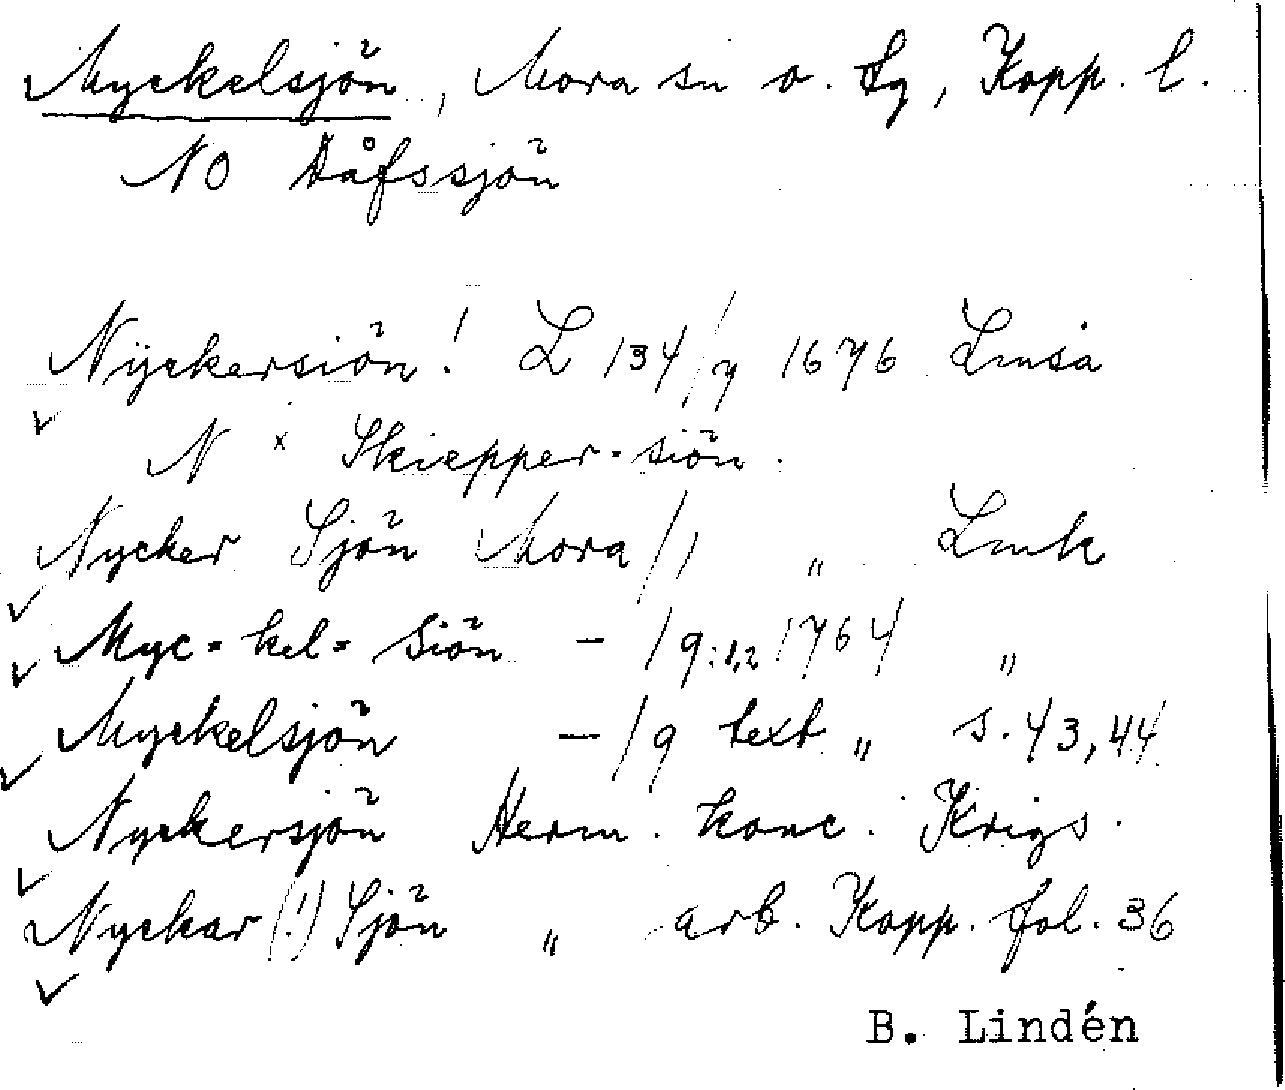 Myckelsjön, Mora sn o. tg, Kopp. l.
NO Dåfssjön
Nÿckersiön! L 134/7 1676 Lmsa
N x Skiepper-siön.
Nycker Sjön Mora/1 " Lmk
Myc=kel= Siön - /9:1,2 1764 "
Myckelsjön - /9 text " s. 43, 44
Nyckersjön Herm. konc. Krigs.
Nyckar (!) Sjön " arb. Kopp. fol. 36
B. Lindén